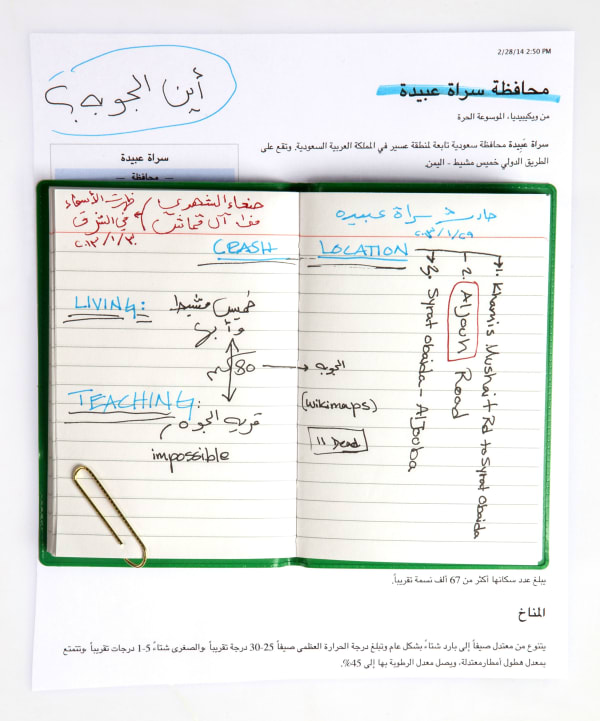 2/28/14 2:50 PM
محافظة سراة عبيدة
أين الجوبه؟
من ويكيبيديا، الموسوعة الحرة
سراة عَبِيدة محافظة سعودية تابعة لمنطقة عسير في المملكة العربية السعودية. وتقع على
الطريق الدولي خميس مشيط - اليمن.
سراة عبيدة
— محافظة —
حادث سراة عبيده
٢٠١٣/١/٢٩
صنعاء الشهري
ظهرت الأسماء
في الشرق
٢٠١٣/١/٣٠
CRASH LOCATION
1. Khamis Mushait Rd to Syrat Obaida
2. AlJouh Road
3. Syrat Obaida - AlJooba
LIVING:
خميس مشيط
وأبها
80 كم
الجوبه
(wikimaps)
11 Dead
TEACHING:
قرية الجوه
impossible
يبلغ عدد سكانها أكثر من 67 ألف نسمة تقريباً.
المناخ
يتنوع من معتدل صيفاً إلى بارد شتاءً بشكل عام وتبلغ درجة الحرارة العظمى صيفاً 25-30 درجة تقريباً .والصغرى شتاءً 1-5 درجات تقريباً .وتتمتع
بمعدل هطول أمطارمعتدلة، ويصل معدل الرطوبة بها إلى 45%.